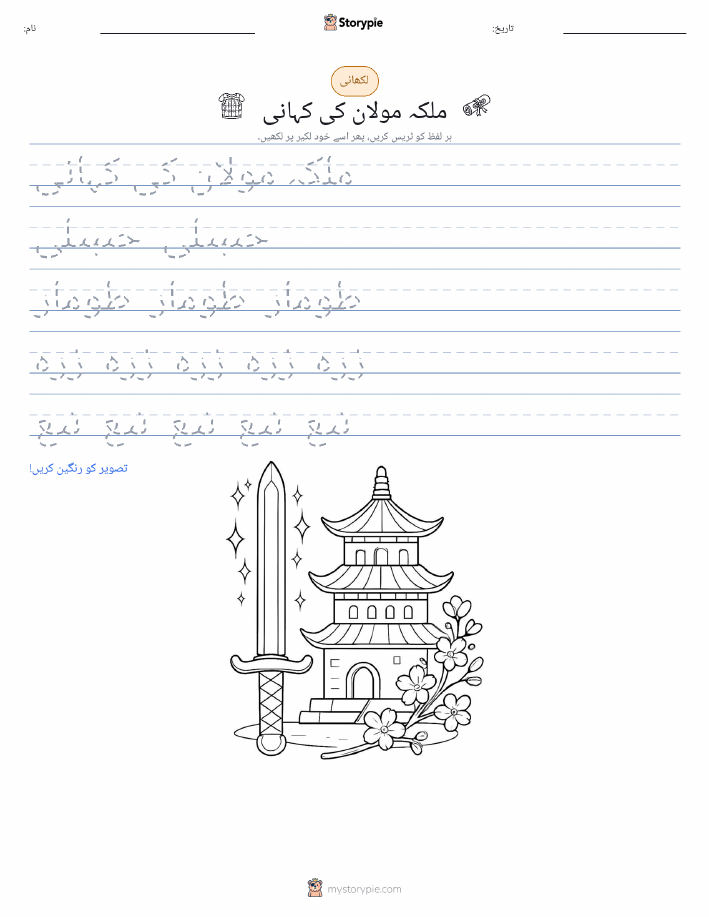 نام:
Storypie
تاریخ:
لکھائی
ملکہ مولان کی کہانی
ہر لفظ کو ٹریس کریں، پھر اسے خود لکیر پر لکھیں۔
ملکہ مولان کی کہانی
طومار طومار طومار
زرہ زرہ زرہ زرہ زرہ
تیغ تیغ تیغ تیغ تیغ
تصویر کو رنگین کریں!
mystorypie.com